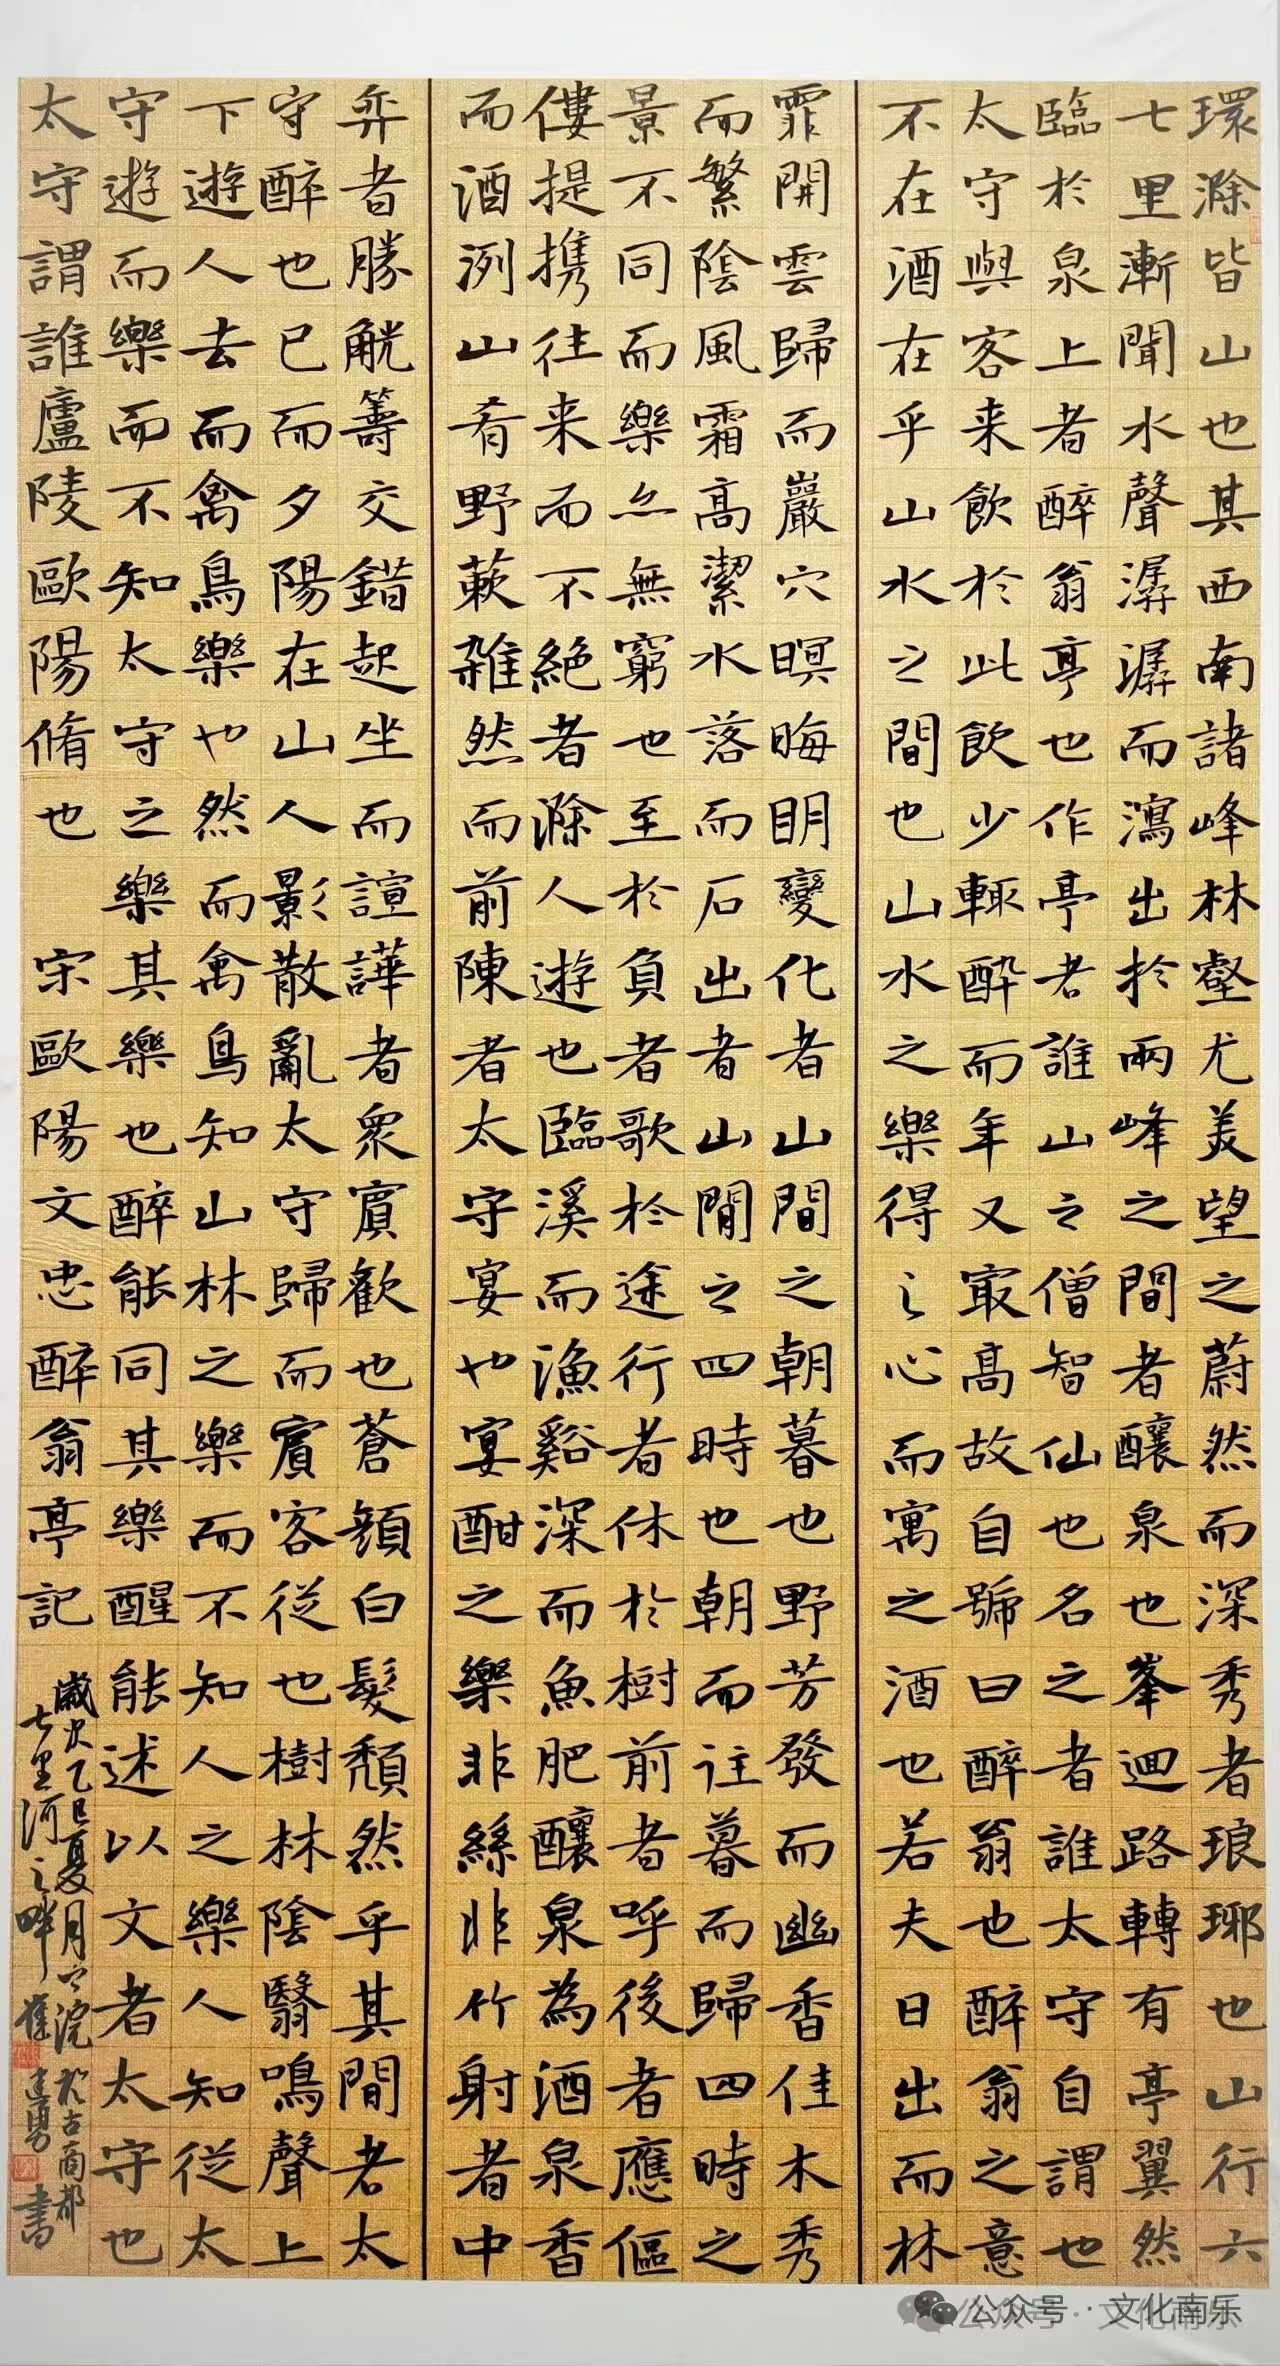 環滁皆山也其西南諸峰林壑尤美望之蔚然而深秀者琅琊也山行六
七里漸聞水聲潺潺而瀉出於兩峰之間者釀泉也峯迴路轉有亭翼然
臨於泉上者醉翁亭也作亭者誰山之僧智仙也名之者誰太守自謂也
太守與客来飲於此飲少輒醉而年又冣高故自號曰醉翁也醉翁之意
不在酒在乎山水之間也山水之樂得之心而寓之酒也若夫日出而林
霏開雲歸而巖穴暝晦眀變化者山間之朝暮也野芳發而幽香佳木秀
而繁陰風霜高潔水落而石出者山間之四時也朝而往暮而歸四時之
景不同而樂亦無窮也至於負者歌於途行者休於樹前者呼後者應傴
僂提携往来而不絕者滁人遊也臨溪而漁谿深而魚肥釀泉為酒泉香
而酒洌山肴野蔌雜然而前陳者太守宴也宴酣之樂非絲非竹射者中
弈者勝觥籌交錯起坐而諠譁者衆賓歡也蒼顏白髮頹然乎其間者太
守醉也已而夕陽在山人影散亂太守歸而賓客從也樹林陰翳鳴聲上
下遊人去而禽鳥樂也然而禽鳥知山林之樂而不知人之樂人知從太
守遊而樂而不知太守之樂其樂也醉能同其樂醒能述以文者太守也
太守謂誰廬陵歐陽脩也 宋歐陽文忠醉翁亭記
歲次乙巳夏月之浣於古商都
七里河之畔崔建勇書
公众号·文化南乐